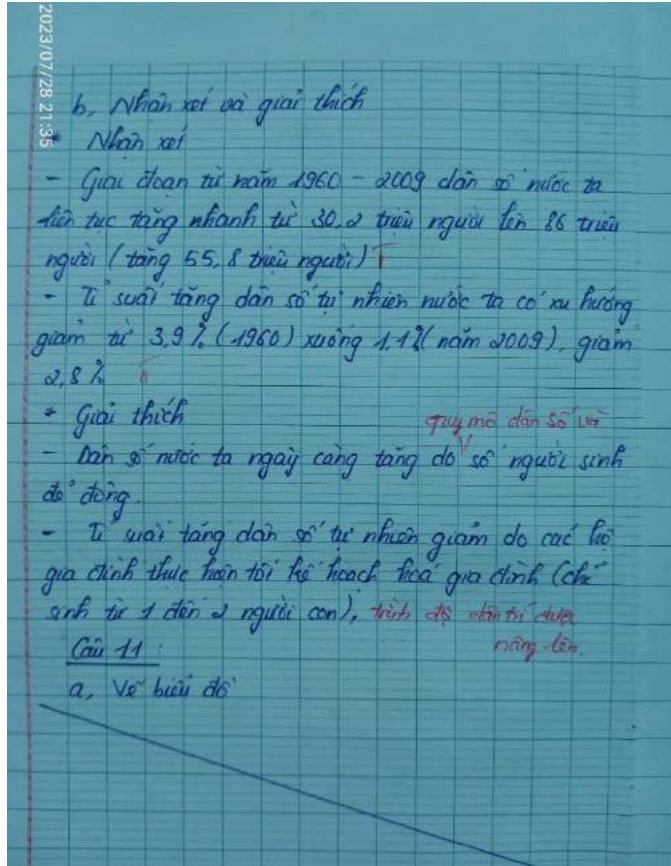 2023/07/28 21:35
b, Nhận xét và giải thích
* Nhận xét
- Giai đoạn từ năm 1960 - 2009 dân số nước ta
liên tục tăng nhanh từ 30,2 triệu người lên 86 triệu
người (tăng 55,8 triệu người)
- Tỉ suất tăng dân số tự nhiên nước ta có xu hướng
giảm từ 3,9% (1960) xuống 1,1% (năm 2009), giảm
2,8%
* Giải thích
quy mô dân số và
- Dân số nước ta ngày càng tăng do số người sinh
đẻ đông.
- Tỉ suất tăng dân số tự nhiên giảm do các hộ
gia đình thực hiện tốt kế hoạch hoá gia đình (chỉ
sinh từ 1 đến 2 người con), trình độ dân trí được
nâng lên.
Câu 11:
a, Vẽ biểu đồ